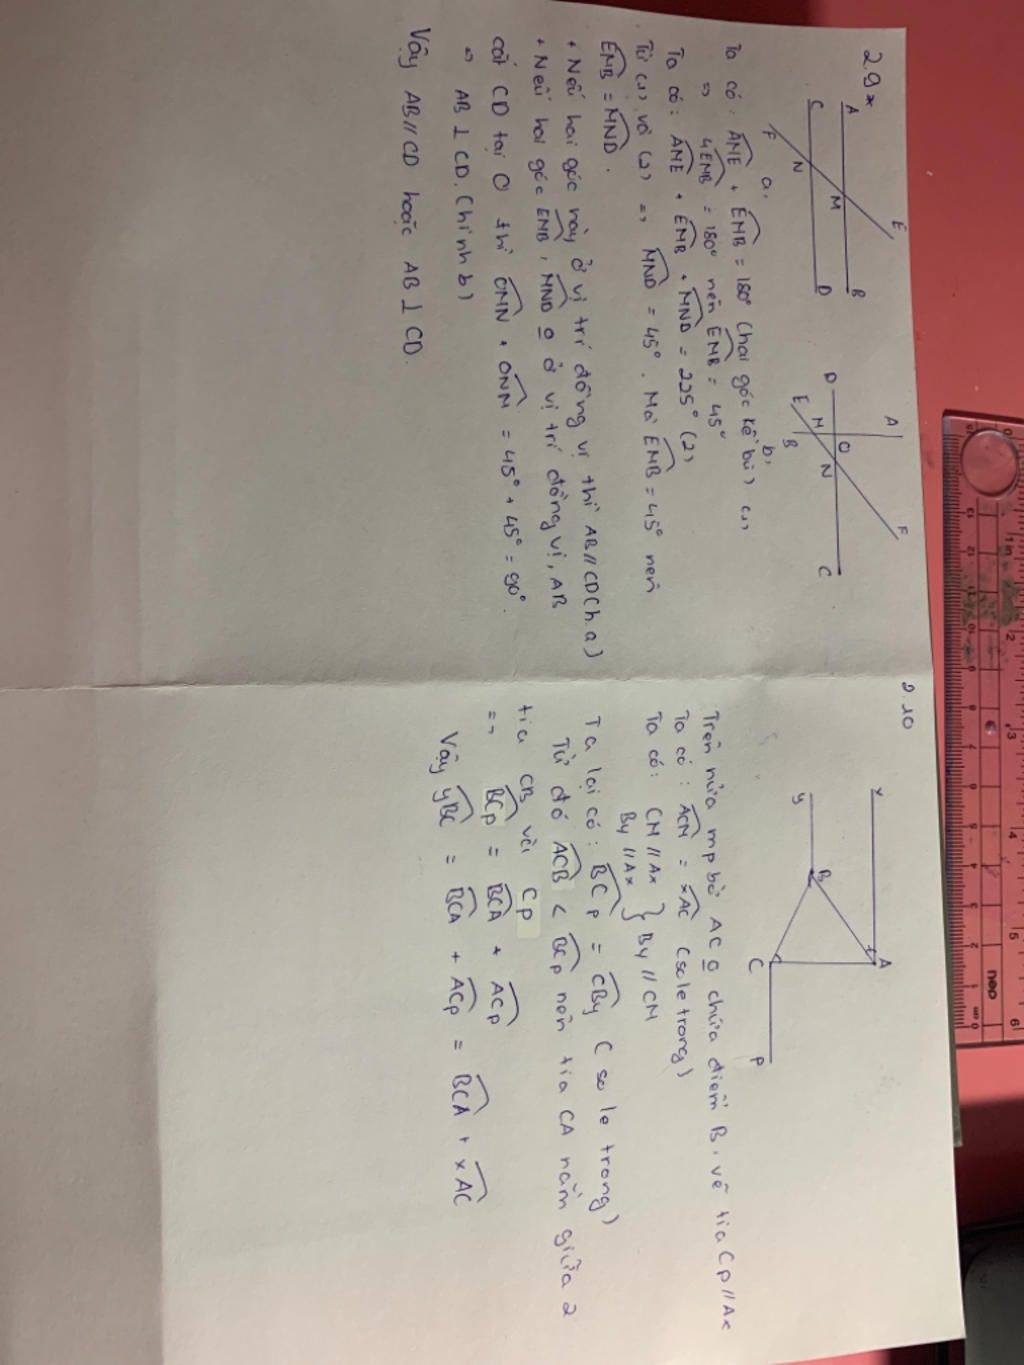 2.9*
A
B
C
D
E
F
M
N
a,
D
C
A
B
E
F
M
N
O
b,
Ta có: AME + EMB = 180° (hai góc kề bù) (1)
=> 4EMB = 180° nên EMB = 45°
Ta có: AME + EMB + MND = 225° (2)
Từ (1) và (2) => MND = 45°. Mà EMB = 45° nên
EMB = MND.
+ Nếu hai góc này ở vị trí đồng vị thì AB // CD (h.a)
+ Nếu hai góc EMB, MND o ở vị trí đồng vị, AB
cắt CD tại O thì OMN + ONM = 45° + 45° = 90°.
=> AB ⊥ CD. (hình b)
Vậy AB // CD hoặc AB ⊥ CD.
2.10
x
A
y
B
C
P
Trên nửa mp bờ AC o chứa điểm B, vẽ tia Cp // Ax
Ta có: ACM = xAC (so le trong)
Ta có: CM // Ax
By // Ax } By // CM
Ta lại có: BCp = CBy (so le trong)
Từ đó ACB < BCp nên tia CA nằm giữa 2
tia CB với Cp
=> BCp = BCA + ACp
Vậy yBC = BCA + ACp = BCA + xAC
neo